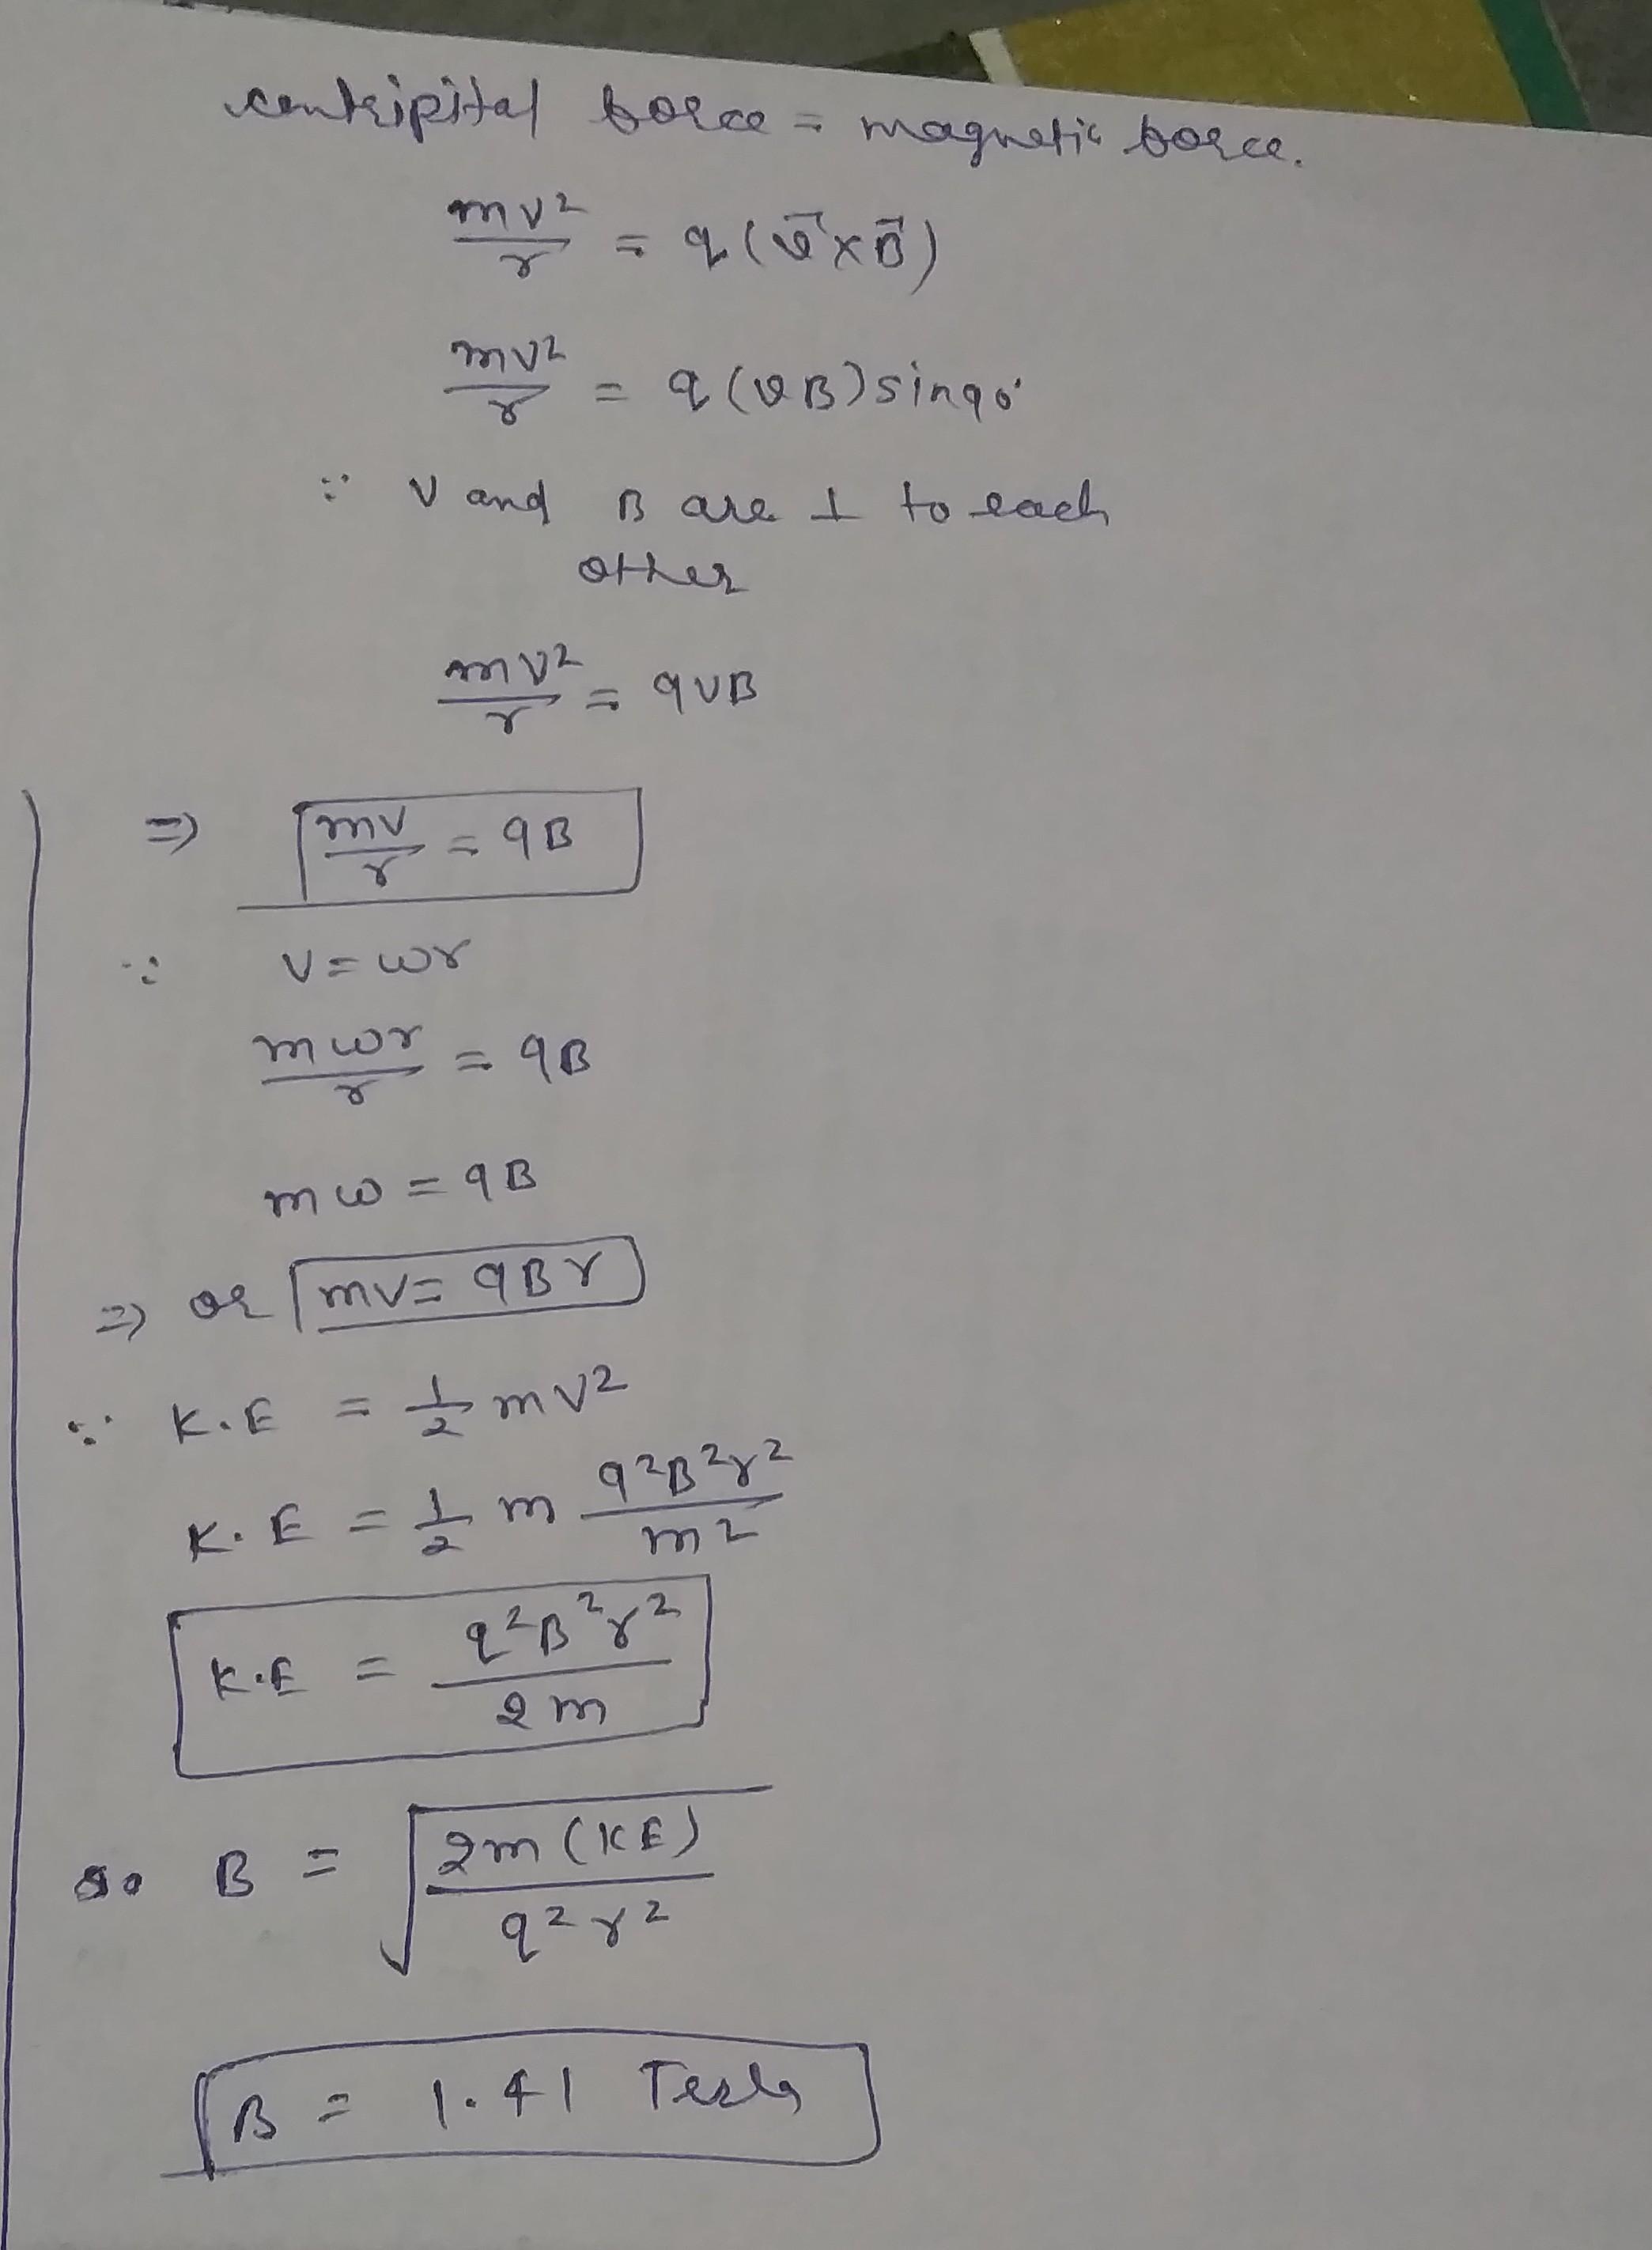 centripital force = magnetic force.
mv²/r = q(v⃗×B⃗)
mv²/r = q(vB)sin90°
∵ v and B are ⊥ to each
other
mv²/r = qvB
⇒ mv/r = qB
∵ v=ωr
mωr/r = qB
mω = qB
⇒ or mv= qBr
∵ K.E = 1/2 mv²
K.E = 1/2 m q²B²r²/m²
K.E = q²B²r²/2m
so B = √(2m(KE)/q²r²)
B = 1.41 Tesla